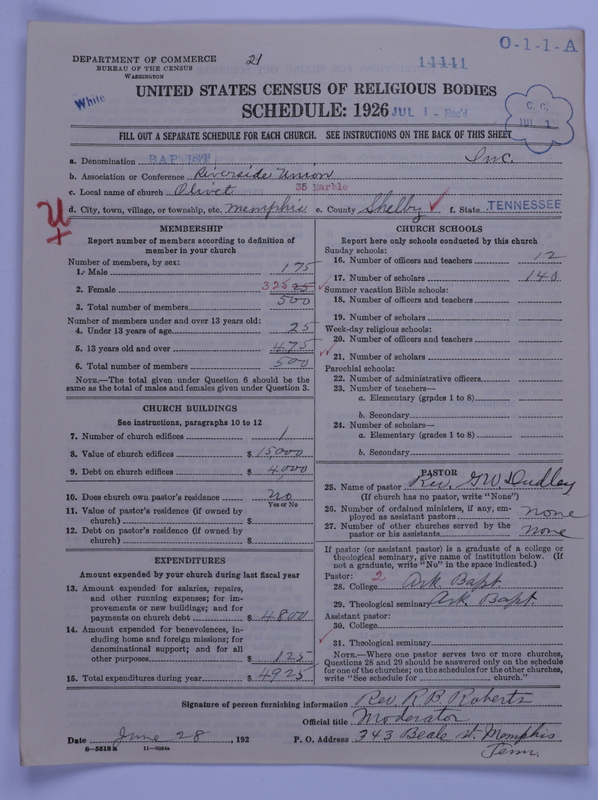 O-1-1-A
DEPARTMENT OF COMMERCE
BUREAU OF THE CENSUS
WASHINGTON
21
11111
White
UNITED STATES CENSUS OF RELIGIOUS BODIES
SCHEDULE: 1926
JUL 1 - Rec'd
C. C.
JUL 1
FILL OUT A SEPARATE SCHEDULE FOR EACH CHURCH. SEE INSTRUCTIONS ON THE BACK OF THIS SHEET
a. Denomination BAPTIST Inc.
b. Association or Conference Riverside Union
c. Local name of church Olivet 35 Marble
d. City, town, village, or township, etc. Memphis e. County Shelby f. State TENNESSEE
MEMBERSHIP
Report number of members according to definition of
member in your church
Number of members, by sex:
1. Male 175
2. Female 325
3. Total number of members 500
Number of members under and over 13 years old:
4. Under 13 years of age 25
5. 13 years old and over 475
6. Total number of members 500
NOTE.—The total given under Question 6 should be the
same as the total of males and females given under Question 3.
CHURCH BUILDINGS
See instructions, paragraphs 10 to 12
7. Number of church edifices 1
8. Value of church edifices $ 15,000
9. Debt on church edifices $ 4,000
10. Does church own pastor's residence No
Yes or No
11. Value of pastor's residence (if owned by
church) $
12. Debt on pastor's residence (if owned by
church) $
EXPENDITURES
Amount expended by your church during last fiscal year
13. Amount expended for salaries, repairs,
and other running expenses; for im-
provements or new buildings; and for
payments on church debt $ 4800
14. Amount expended for benevolences, in-
cluding home and foreign missions; for
denominational support; and for all
other purposes $ 125
15. Total expenditures during year $ 4925
CHURCH SCHOOLS
Report here only schools conducted by this church
Sunday schools:
16. Number of officers and teachers 12
17. Number of scholars 140
Summer vacation Bible schools:
18. Number of officers and teachers
19. Number of scholars
Week-day religious schools:
20. Number of officers and teachers
21. Number of scholars
Parochial schools:
22. Number of administrative officers
23. Number of teachers—
a. Elementary (grades 1 to 8)
b. Secondary
24. Number of scholars—
a. Elementary (grades 1 to 8)
b. Secondary
PASTOR
25. Name of pastor Rev. G W Dudley
(If church has no pastor, write "None")
26. Number of ordained ministers, if any, em-
ployed as assistant pastors none
27. Number of other churches served by the
pastor or his assistants none
If pastor (or assistant pastor) is a graduate of a college or
theological seminary, give name of institution below. (If
not a graduate, write "No" in the space indicated.)
Pastor:
28. College 2 Ark Bapt.
29. Theological seminary Ark Bapt.
Assistant pastor:
30. College
31. Theological seminary
NOTE.—Where one pastor serves two or more churches,
Questions 28 and 29 should be answered only on the schedule
for one of the churches; on the schedules for the other churches,
write "See schedule for church."
Signature of person furnishing information Rev R B Roberts
Official title Moderator
Date June 28, 192 P. O. Address 343 Beale St. Memphis
Tenn.
8-5518a 11-9084a